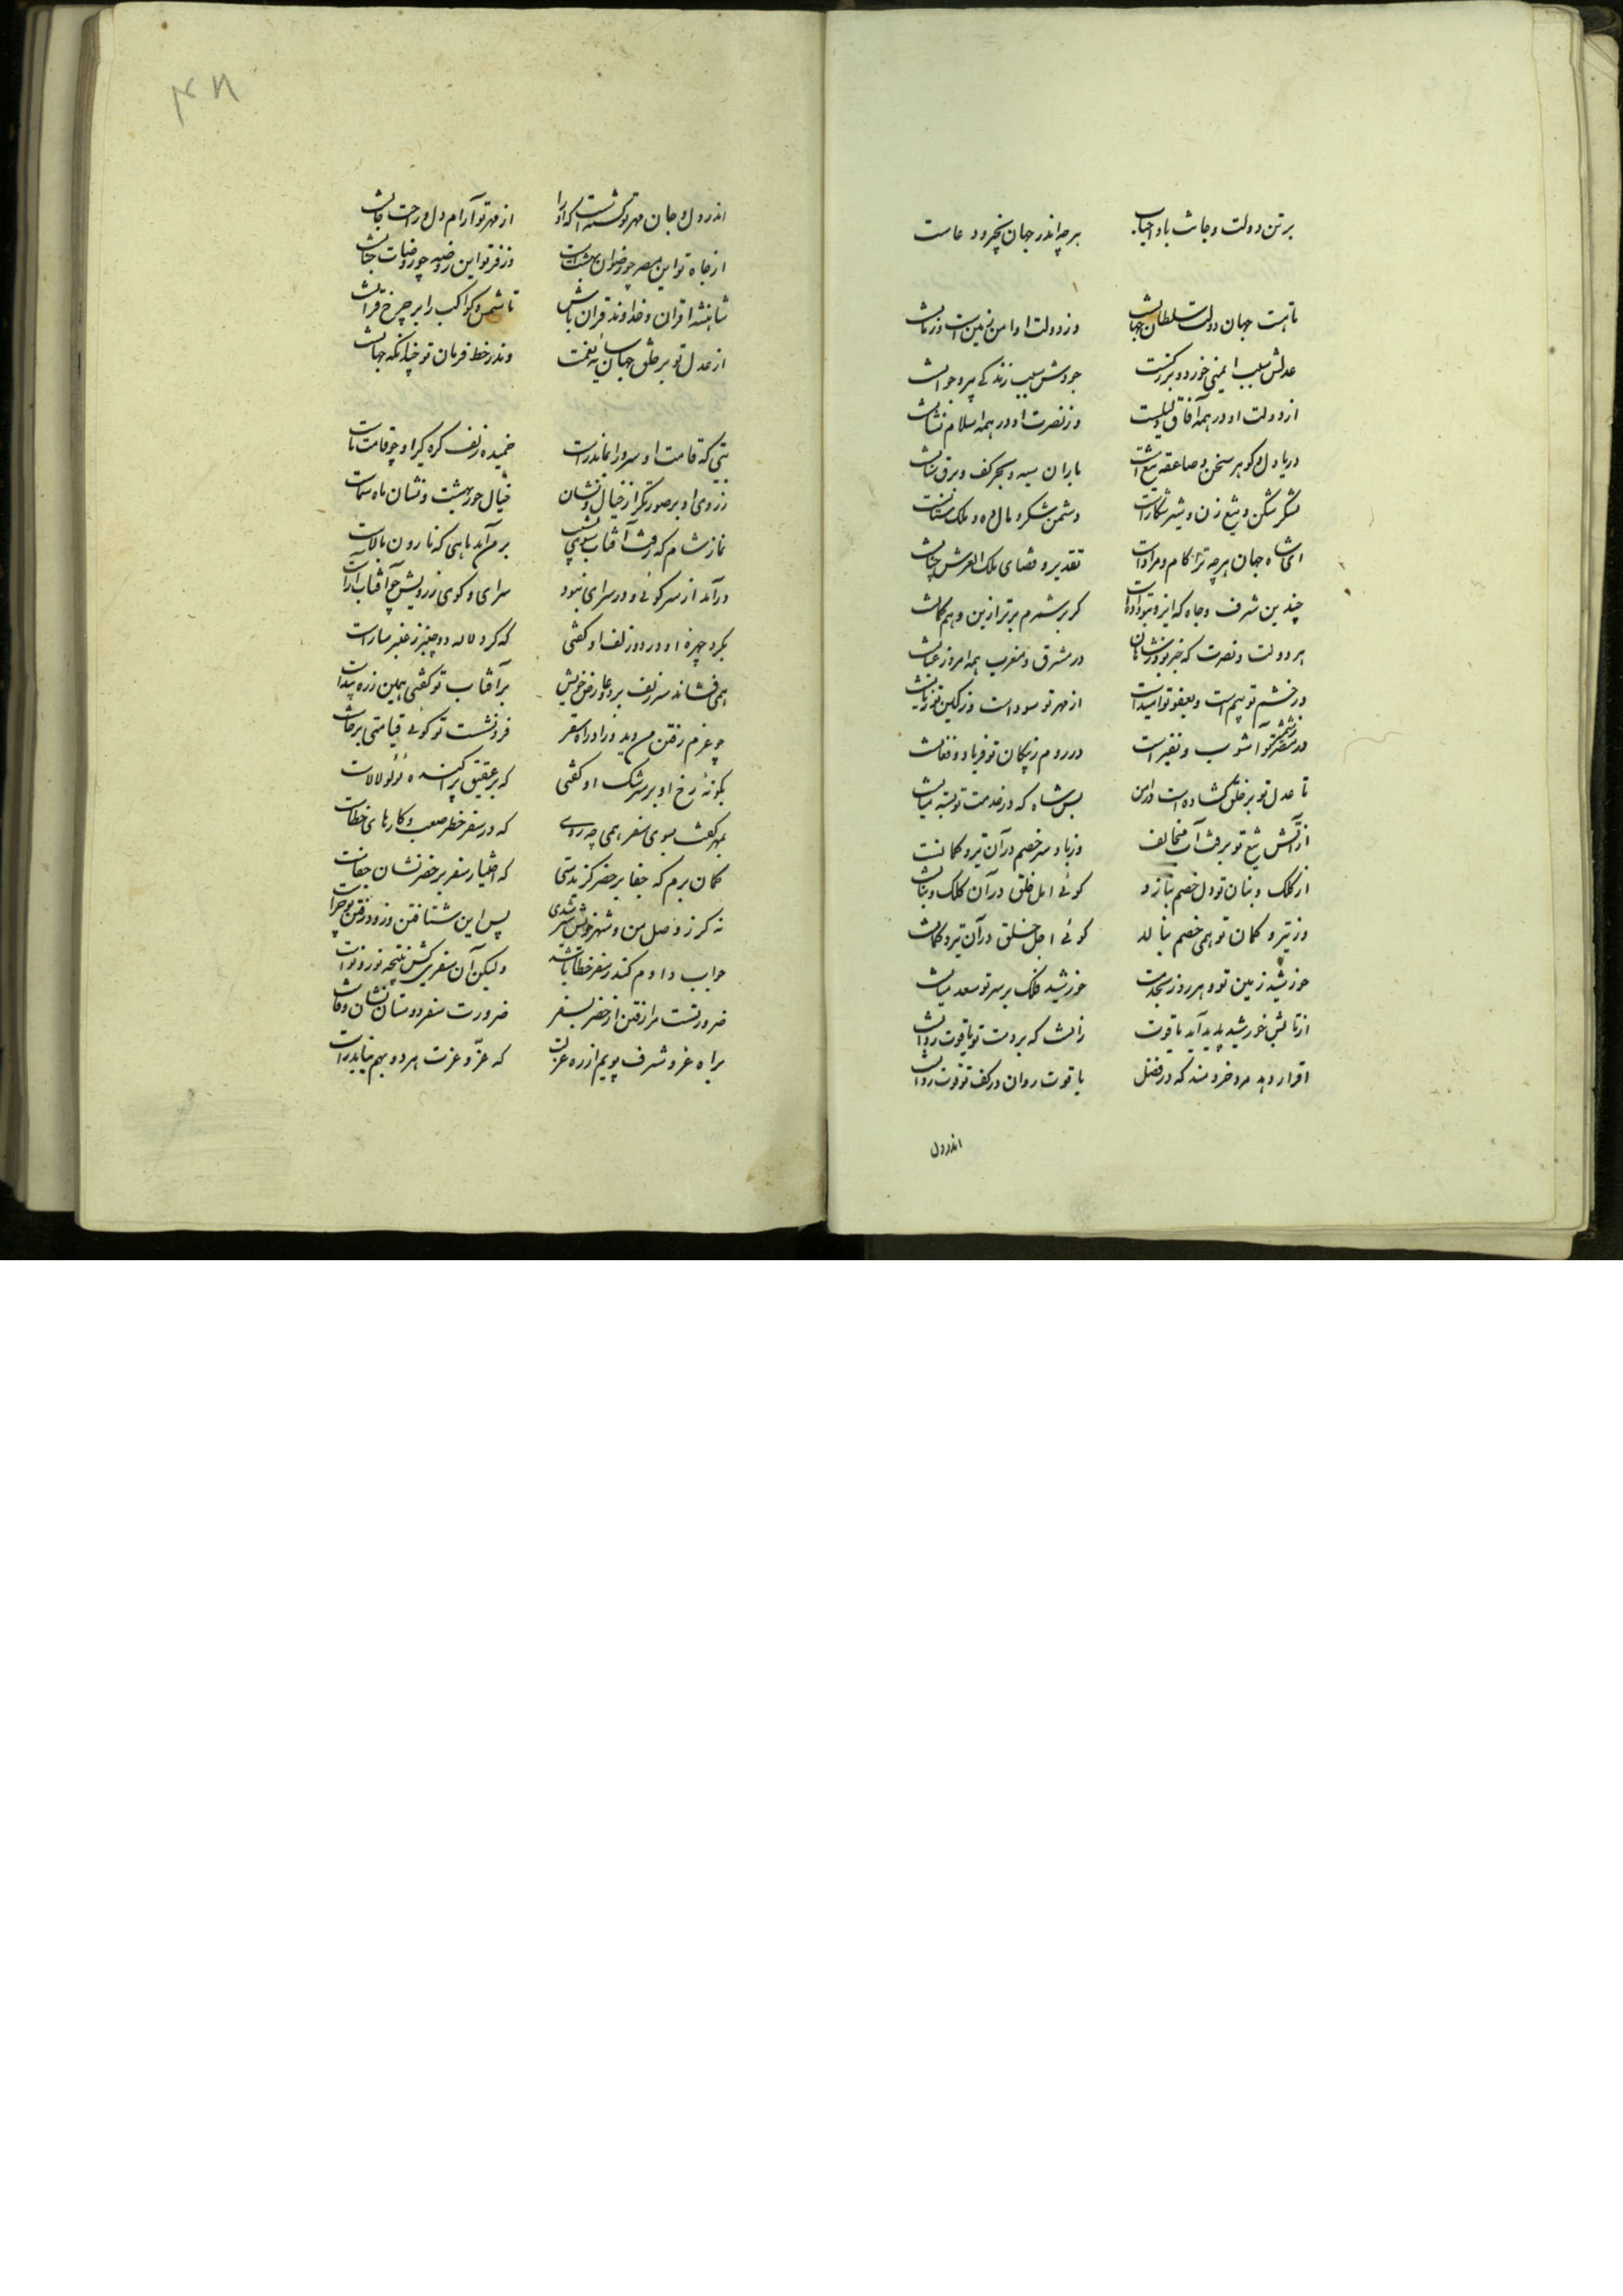 برتن دولت و جانت باد احباب هرچه اندر جهان بخیر و دعاست
تا هست جهان دولت سلطان جهانست وز دولت او امن زمین است و زمانست
عدلش سبب ایمنی خورد و بزرگست جودش سبب زندگی پیر و جوانست
از دولت او در همه آفاق دلیلست وز نصرت او در همه اسلام نشانست
دریا دل و گوهر سخن و صاعقه تیغ است باران سپه و بحر کف و برق سنانست
لشکر شکن و تیغ زن و شیر شکار است دشمن شکر و مال ده و ملک ستانست
ای شاه جهان هرچه ترا کام و مراد است تقدیر و قضای ملک العرش چنانست
چندین شرف و جاه که ایزد بتو داد است گر برشمرم برتر ازین وهم و گمانست
هر دولت و نصرت که خبر بود ز شاهان در مشرق و مغرب همه امروز عیانست
در خشم تو بیم است و بعفو تو امید است از مهر تو سود است وز کین تو زیانست
در مصر ز شمشیر تو آشوب و نفیر است در روم ز پیکان تو فریاد و فغانست
تا عدل تو بر خلق گشاده است در امن بس شاه که در خدمت تو بسته میانست
از آتش تیغ تو برفت آب مخالف وز باد سر خصم در آن تیر و کمانست
از کلک و بنان تو دل خصم بنازد گوئی امل خلق در آن کلک و بنانست
وز تیر و کمان تو همی خصم بنالد گوئی اجل خلق در آن تیر و کمانست
خورشید زمین تو و هر روز بخدمت خورشید فلک بر سر تو سعد میانست
از تابش خورشید پدید آید یاقوت زانست که بر دست تو یاقوت روانست
اقرار دهد مرد خردمند که در فضل یاقوت روان در کف تو قوت روانست
اندر دل
۴۸
اندر دل و جان مهر تو کشته است که او را از مهر تو آرام دل و راحت جانست
از جاه تو این مصر چو رضوان بهشت است وز فر تو این روضه چو روضات جنانست
شاهنشه اقران و خداوند قران باش تا شمس و کواکب را بر چرخ قرانست
از عدل تو بر خلق جهان سایه نعمت وندر خط فرمان تو چندانکه جهانست
بتی که قامت او سرو را بماند راست خمیده زلف گره گیر او چو قامت ماست
ز روی او بر صورتگر از خیال و نشان خیال حور بهشت و نشان ماه سماست
نماز شام که رفت آفتاب سوی نشیب بر من آمد ماهی که نارون بالاست
درآمد از سر کوئی و در سرای نبود سرای و کوی ز رویش چو آفتاب آراست
بگرد چهره او در دو زلف او گفتی که گرد لاله دو چنبر ز عنبر ساراست
همی فشاند سر زلف بر دو عارض خویش بر آفتاب تو گفتی همین زره پیداست
چو عزم رفتن من دید و زاد راه سفر فرو نشست تو گوئی قیامتی برخاست
بگونه رخ او بر سرشک او گفتی که بر عقیق پراکنده لؤلؤ لالاست
بمهر گفت بسوی سفر همی چه روی که در سفر خطر صعب و کارهای خطاست
گمان برم که جفا بر حضر گزیدستی که اختیار سفر بر حضر نشان جفاست
نه گر ز وصل من و شهر خویش سیر شدی پس این شتافتن و زود رفتن تو چراست
جواب دادم کندر سفر خطا باشد ولیکن آن سفری کش نتیجه نور و نواست
ضرورتست مرا رفتن از حضر بسفر ضرورت سفر دوستان نشان وفاست
براه عز و شرف پویم از ره عزلت که عزّ و عزت هر دو بهم نیاید راست